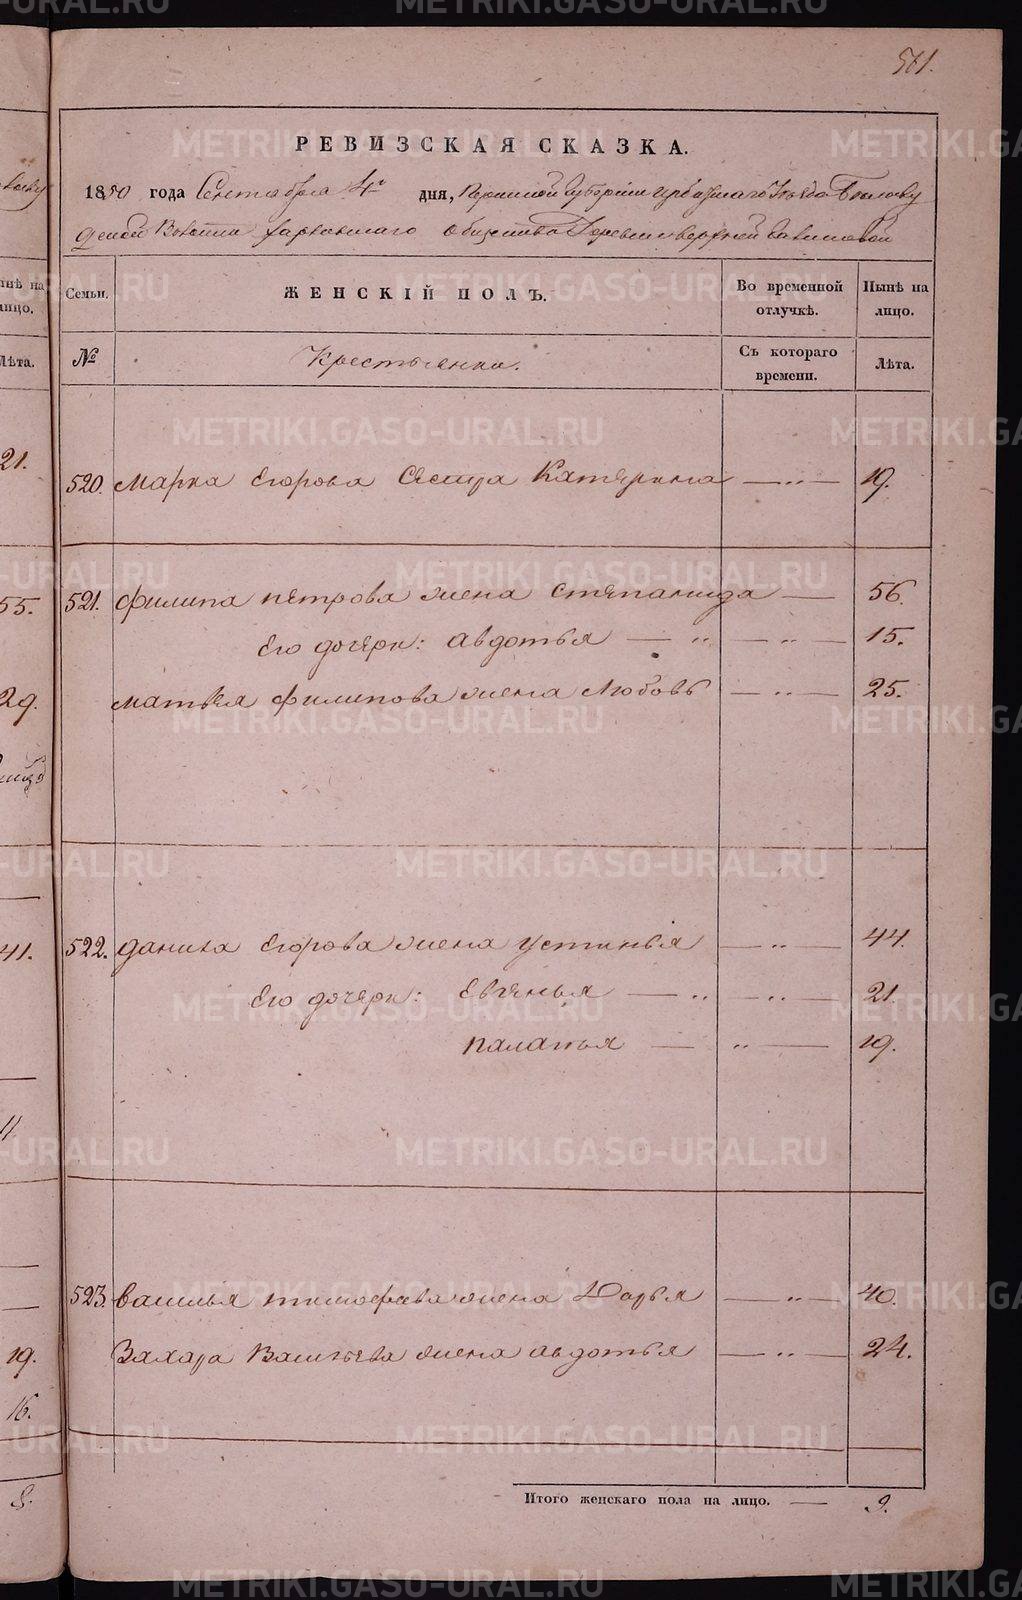 561.
РЕВИЗСКАЯ СКАЗКА.
1850 года Сентября 4го дня, Пермской Губернии Ирбитскаго Уезда Белослу
дской Волости Харловскаго общества Деревни верхней
Семьи. ЖЕНСКІЙ ПОЛЪ. Во временной отлучкѣ. Нынѣ на лицо.
№ Крестьянки. Съ котораго времени. Лѣта.
520. марка Егорова Сестра Катерина — „ — 19.
521. филипа петрова жена степанида — 56.
Его дочери: авдотья — „ — „ — 15.
матвея филипова жена Любовь — „ — 25.
522. данила Егорова жена устинья — „ — 44.
Его дочери: Евгенья — „ — „ — 21.
палагья — „ — 19.
523. василья тимофеева жена Дарья — „ — 40.
Захара Васильева жена авдотья — „ — 24.
Итого женскаго пола на лицо. — 9.
нынѣ на
лицо.
Лѣта.
21.
55.
29.
41.
11
19.
16.
8.
METRIKI.GASO-URAL.RU